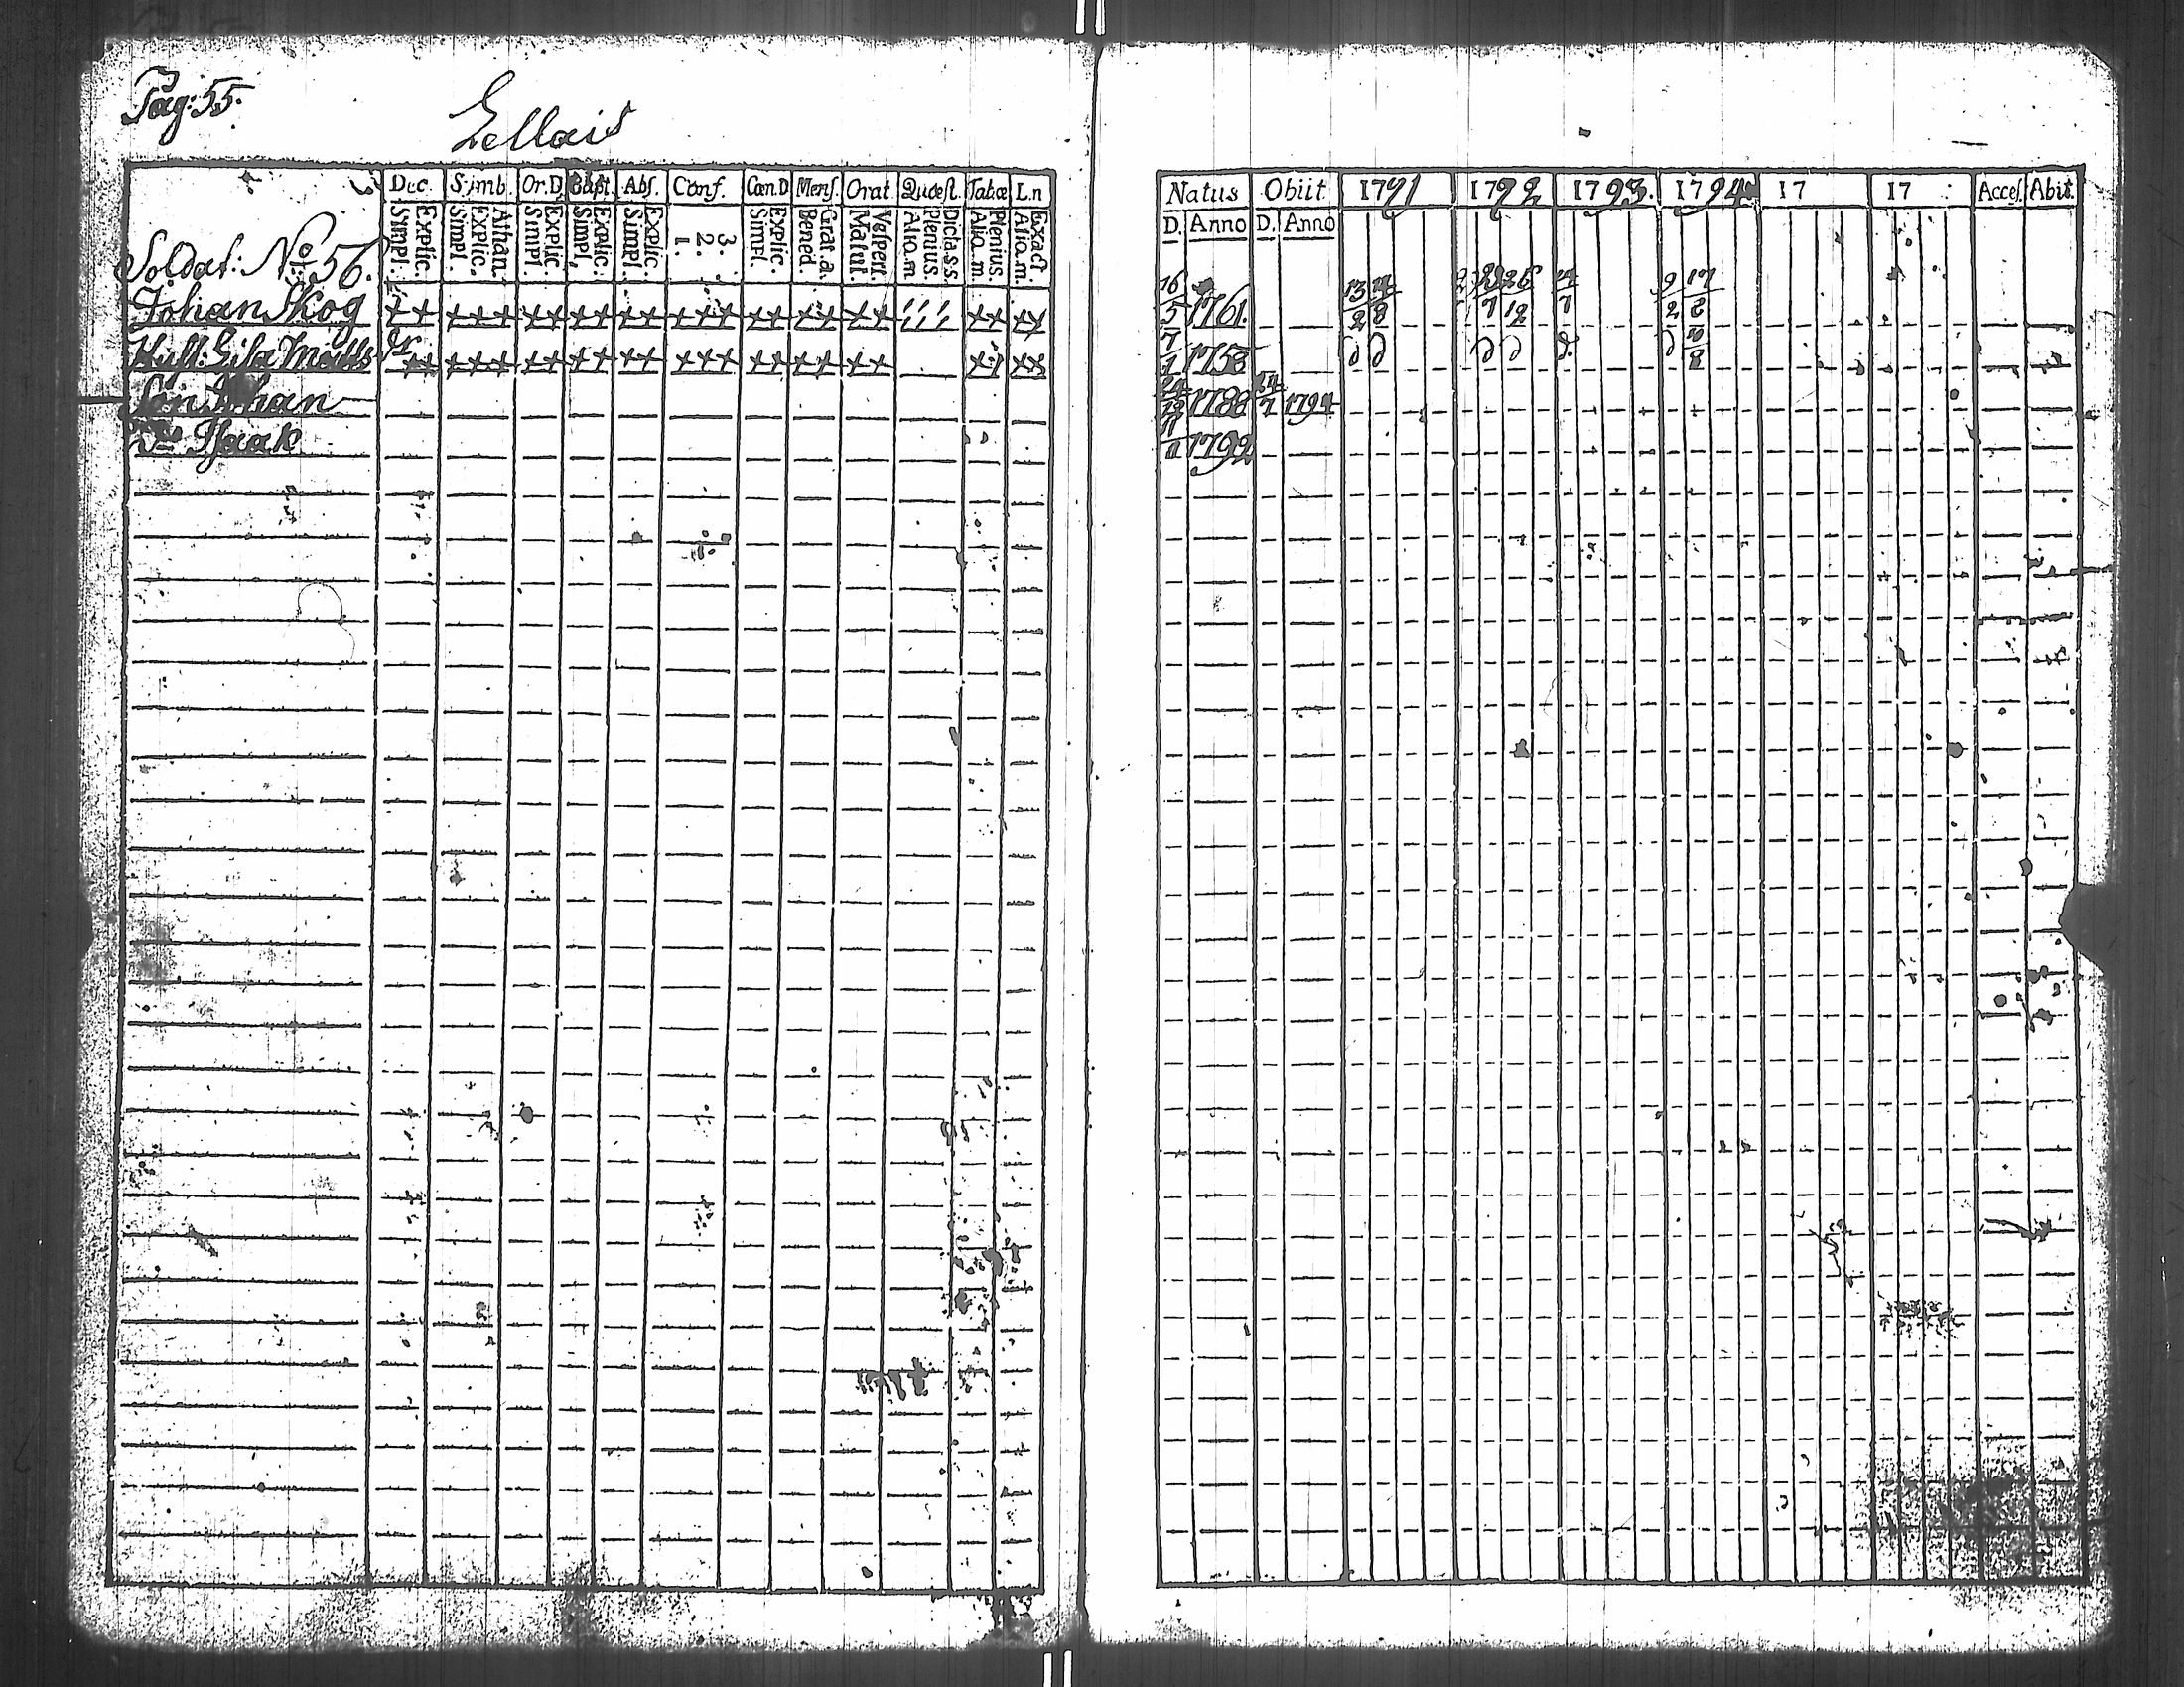 Pag: 55.
Lellais
Dec. Simb. Or.D. Bapt. Abs. Conf. Cœn.D Mens. Orat. Quæst. Tabæ L.n
Explic. Simpl. Athan. Explic. Simpl. Explic. Simpl. Explic. Simpl. Explic. Simpl. 3. 2. 1. Explic. Simpl. Grat. a. Bened. Vespert. Matut. Dicta s.s. Plenius. Alio.m. Plenius. Alio.m. Exact. Alio.m.
Soldat: No 56.
Johan Skog
Hust: Lisa Matts dr
Son Johan
Do Isaak
Natus Obiit 1791 1792 1793. 1794 17 17 Acces. Abit.
D. Anno D. Anno
16/5 1761. 13/2 14/8 7 26/12 4/7 9/2 17/8
7/1 1758 d d d d d. d 10/8
24/12 1788 14/7 1794
11/11 1792